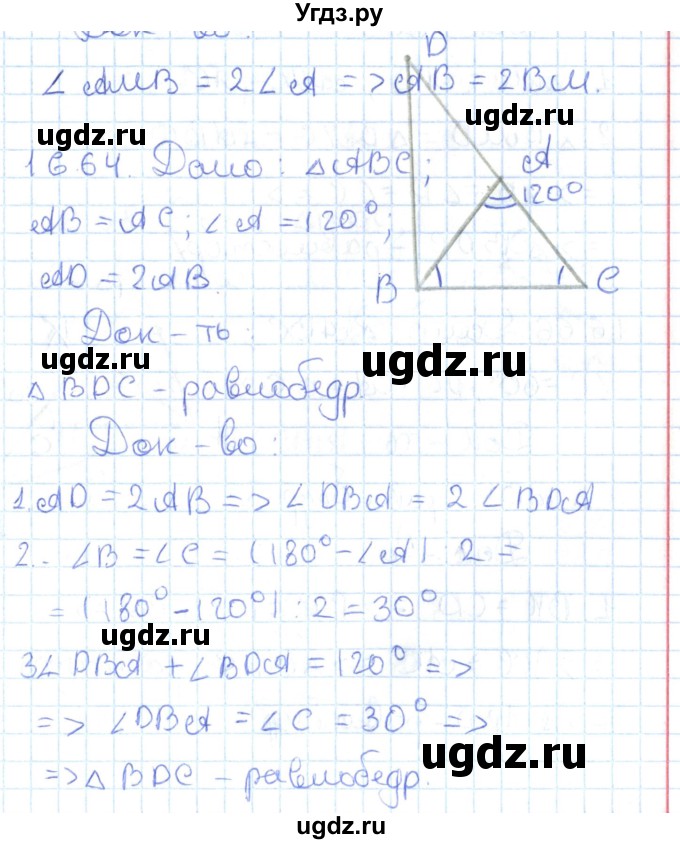 Угдз.ру
Док - во:
∠AMB = 2∠A => AB = 2BM.
D
ugdz.ru
16.64. Дано: △ABC;
A
120°
AB = AC; ∠A = 120°;
AD = 2AB.
B
C
Док - ть:
ugdz.ru
ugdz.ru
△ BDC - равнобедр.
Док - во:
1. AD = 2AB => ∠DBA = 2∠BDA
2. ∠B = ∠C = (180° - ∠A) : 2 =
= (180° - 120°) : 2 = 30°
ugdz.ru
3∠DBA + ∠BDA = 120° =>
=> ∠DBA = ∠C = 30° =>
ugdz.ru
=> △ BDC - равнобедр.
ugdz.ru